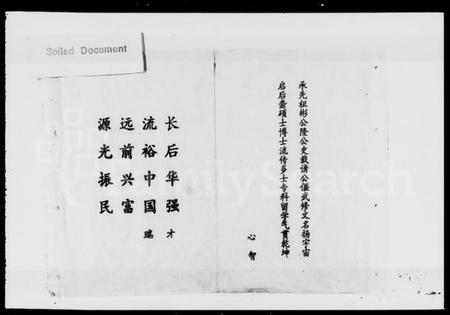 Soiled Document
承先祖彬公隆公史载诸公偃武修文名扬宇宙
启后裔硕士博士流传多士专科留学气贯乾坤
心智
长后华强才
流裕中国瑞
远前兴富
源光振民
FamilySearch